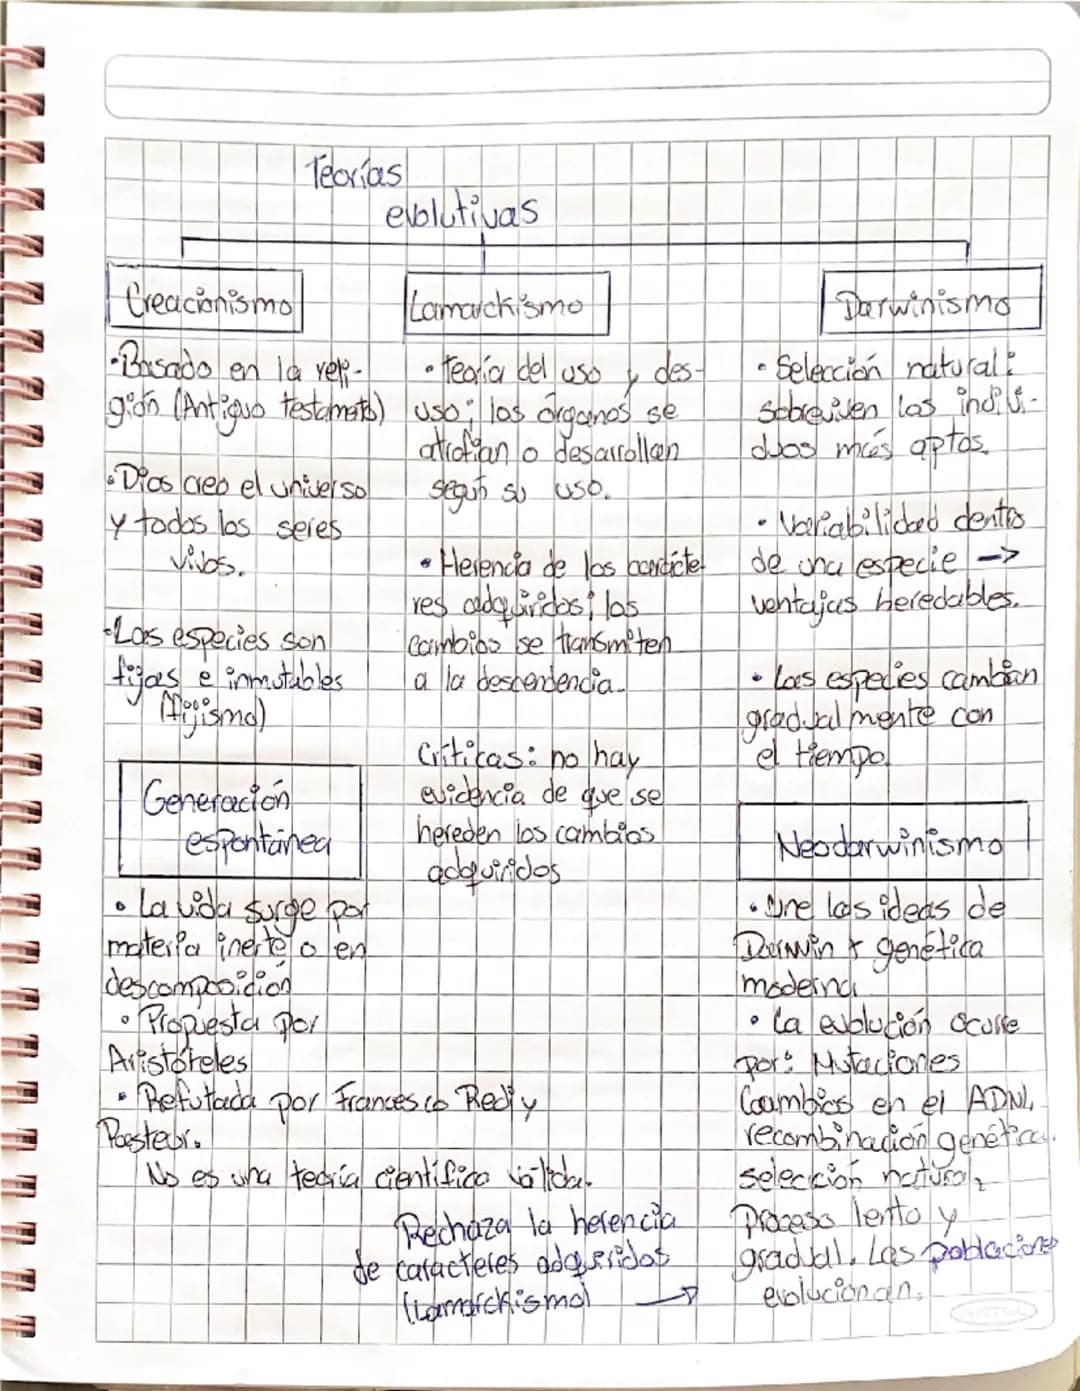 Teorías
evolutivas
Creacionismo
•Basado en la reli-
gión (Antiguo testamento)
•Dios creo el universo
y todos los seres
vivos.
•Las especies son
fijas e inmutables
(fijismo)
Generación
espontánea
• La vida surge por
materia inerte o en
descomposición
• Propuesta por
Aristóteles
• Refutada por Francesco Redi y
Pasteur.
No es una teoría científica válida.
Lamarckismo
• teoría del uso y des-
uso; los órganos se
atrofian o desarrollan
según su uso.
• Herencia de los carácte
res adquiridos; los
cambios se transmiten
a la descendencia.
Críticas: no hay
evidencia de que se
hereden los cambios
adquiridos
Darwinismo
• Selección natural:
sobreviven los indivi-
duos más aptos.
• Variabilidad dentro
de una especie →
ventajas heredables.
• Las especies cambian
gradualmente con
el tiempo.
Neodarwinismo
• Une las ideas de
Darwin y genética
moderna
• La evolución ocurre
por: Mutaciones
(cambios en el ADN),
recombinación genética.
selección natural,
Proceso lento y
gradual. Las poblaciones
evolucionan.
Rechaza la herencia
de caracteres adqueridos
(Lamarckismo) →
ARTEL